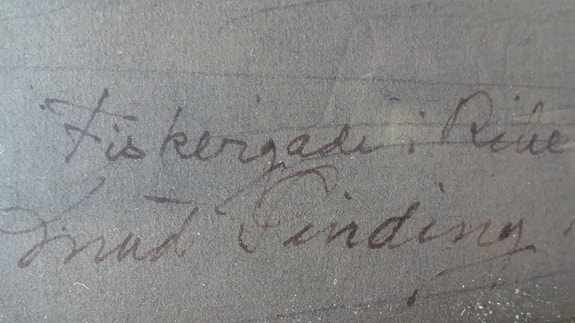 Fiskergade i Ribe
Knud Sinding